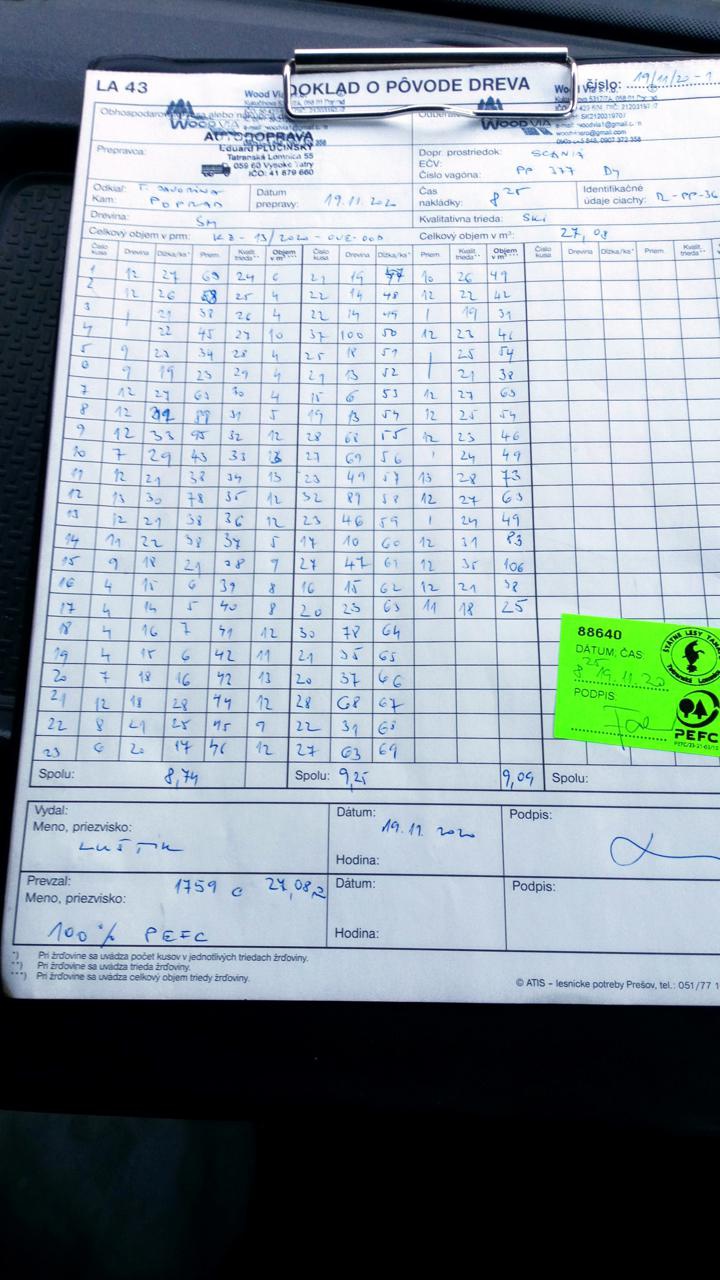 LA 43
DOKLAD O PÔVODE DREVA
číslo: 19/11/20 - 1
Wood Via
WOODVIA
AUTODOPRAVA
Eduard PLUČINSKÝ
Tatranská Lomnica 55
059 60 Vysoké Tatry
IČO: 41 879 660
Prepravca:
Dopr. prostriedok: SCANIA
EČV: PP 377 DY
Číslo vagóna:
Odkiaľ: T. JAVORINA
Kam: POPRAD
Dátum prepravy: 19.11.2020
Čas nakládky: 8 25
Identifikačné údaje ciachy:
Drevina: SM
Kvalitatívna trieda:
Celkový objem v prm:
Celkový objem v m³: 27,08
Číslo kusa Drevina Dĺžka/ks* Priem. Kvalit. trieda** Objem v m³*** Číslo kusa Drevina Dĺžka/ks* Priem. Kvalit. trieda** Objem v m³*** Číslo kusa Drevina Dĺžka/ks* Priem. Kvalit. trieda**
1 12 27 69 24 6 21 19 47 10 26 49
2 12 26 58 25 4 22 14 48 12 22 42
3 21 38 26 4 22 14 49 19 31
4 22 45 27 10 37 100 50 12 23 46
5 9 23 34 28 4 25 18 51 25 54
6 9 19 23 29 4 21 13 52 21 38
7 12 27 63 30 4 15 6 53 12 27 63
8 12 31 89 31 5 19 13 54 12 25 54
9 12 33 95 32 12 28 68 55 12 23 46
10 7 29 43 33 13 27 69 56 24 49
11 12 21 38 34 13 23 49 57 13 28 73
12 13 30 78 35 12 32 89 58 12 27 63
13 12 21 38 36 12 23 46 59 24 49
14 11 22 38 37 5 17 10 60 12 31 83
15 9 18 21 38 9 27 47 61 12 35 106
16 4 15 6 39 8 16 15 62 12 21 38
17 4 14 5 40 8 20 23 63 11 18 25
18 4 16 7 41 12 30 78 64
19 4 15 6 42 11 21 35 65
20 7 18 16 42 13 20 37 66
21 12 18 28 44 12 28 68 67
22 8 21 25 45 9 22 31 68
23 6 20 17 46 12 27 63 69
Spolu: 8,74 Spolu: 9,25 9,09 Spolu:
88640
DÁTUM, ČAS:
8 25 19.11.20
PODPIS:
ŠTÁTNE LESY
PEFC
Vydal:
Meno, priezvisko:
LUŠTIK
Dátum: 19.11.2020
Hodina:
Podpis:
Prevzal: 1759 C 27,08,2
Meno, priezvisko:
100% PEFC
Dátum:
Hodina:
Podpis:
*) Pri žrďovine sa uvádza počet kusov v jednotlivých triedach žrďoviny.
**) Pri žrďovine sa uvádza trieda žrďoviny.
***) Pri žrďovine sa uvádza celkový objem triedy žrďoviny.
© ATIS – lesnícke potreby Prešov, tel.: 051/77 1